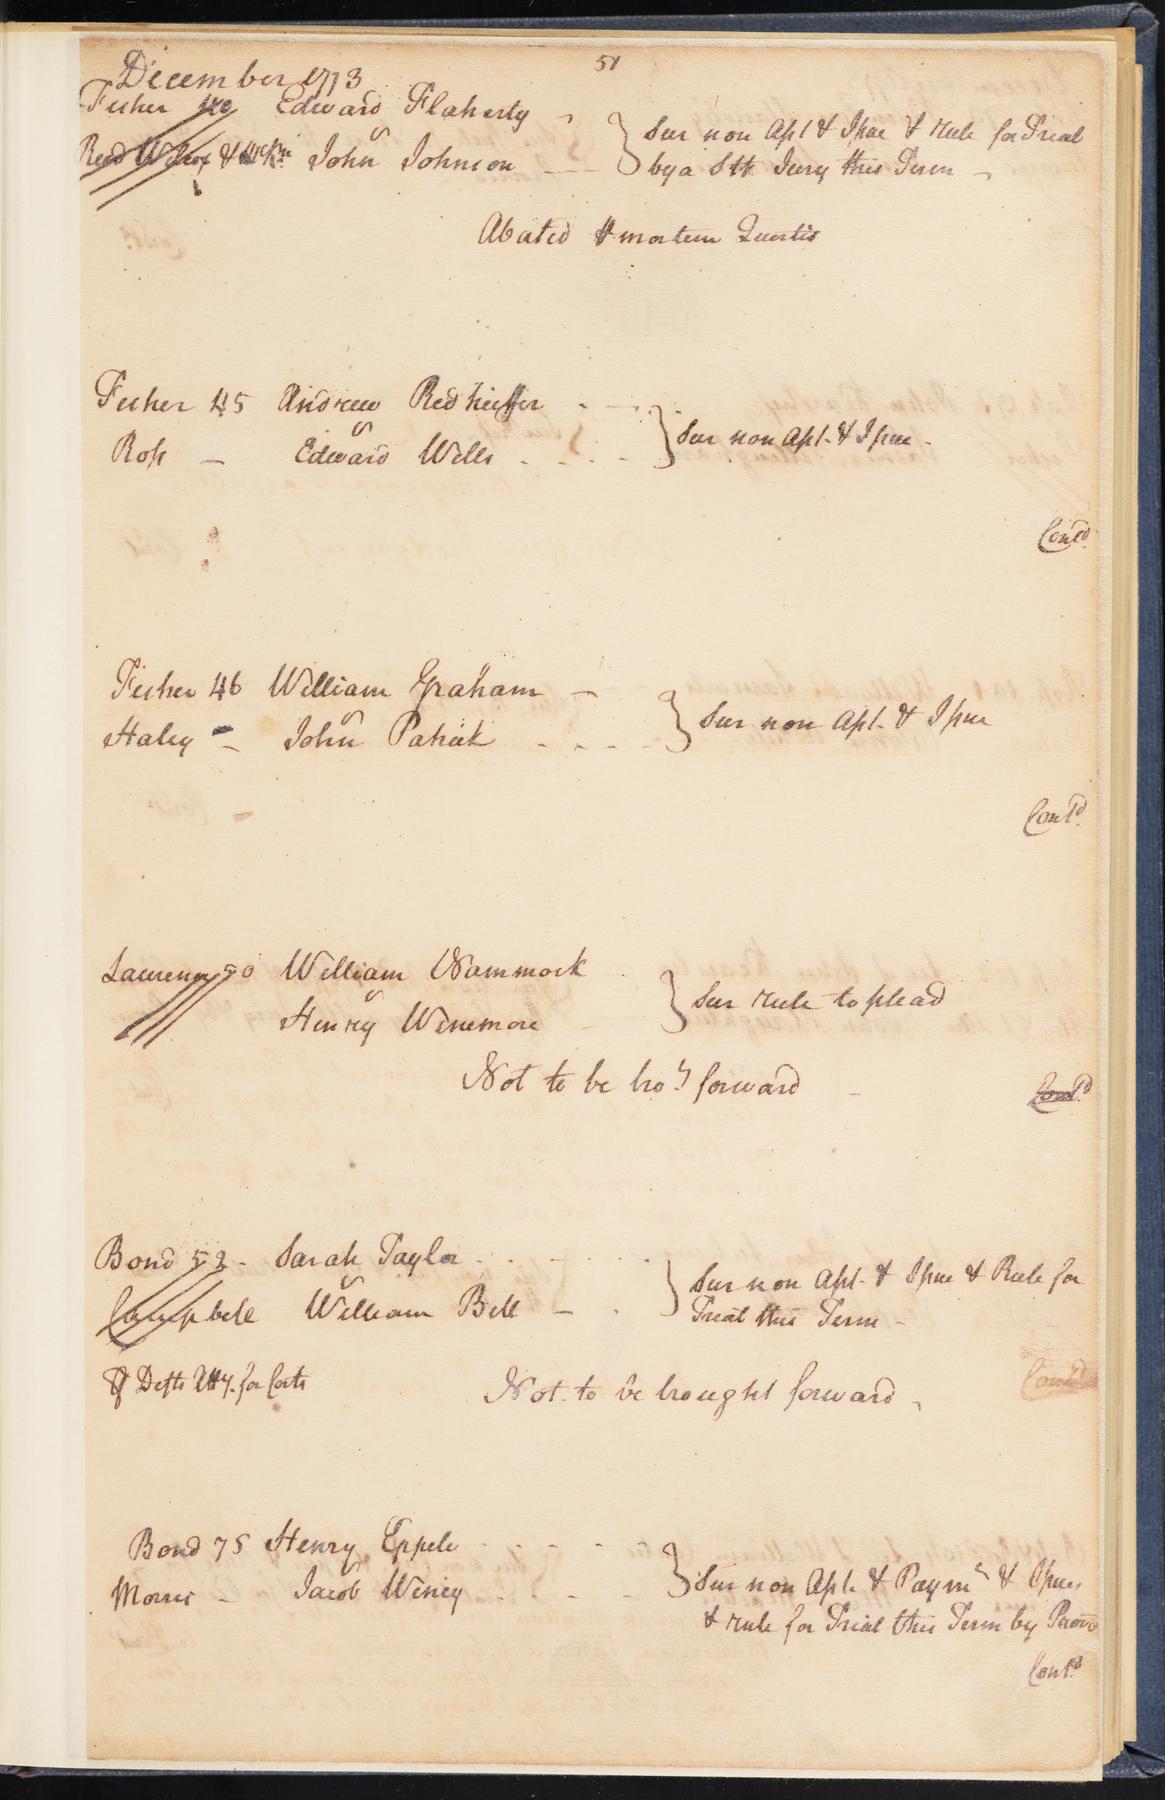 51
December 1773
Fisher 40 Edward Flaherty
vs
Reed Wilcox & McKn John Johnson } Sur non Apt & Issue & rule for Trial
by a Stt Jury this Term
Abated p mortem Quertis
Fisher 45 Andrew Redheiffer
vs
Ross Edward Wells } Sur non Apt. & Issue
Contd
Fisher 46 William Graham
vs
Haley John Patrick } Sur non Apt. & Issue
Contd
Laurence 50 William Wammock
vs
Henry Winemore } Sur rule to plead
Not to be brot forward
Contd
Bond 52 Sarah Taylor
vs
Campbell William Bell } Sur non Apt. & Issue & Rule for
Trial this Term
Defts Atty. for Costs
Not to be brought forward
Contd
Bond 75 Henry Eppele
vs
Morris Jacob Winey } Sur non Apt. & Paymt & Issues
& rule for Trial this Term by Provo
Contd